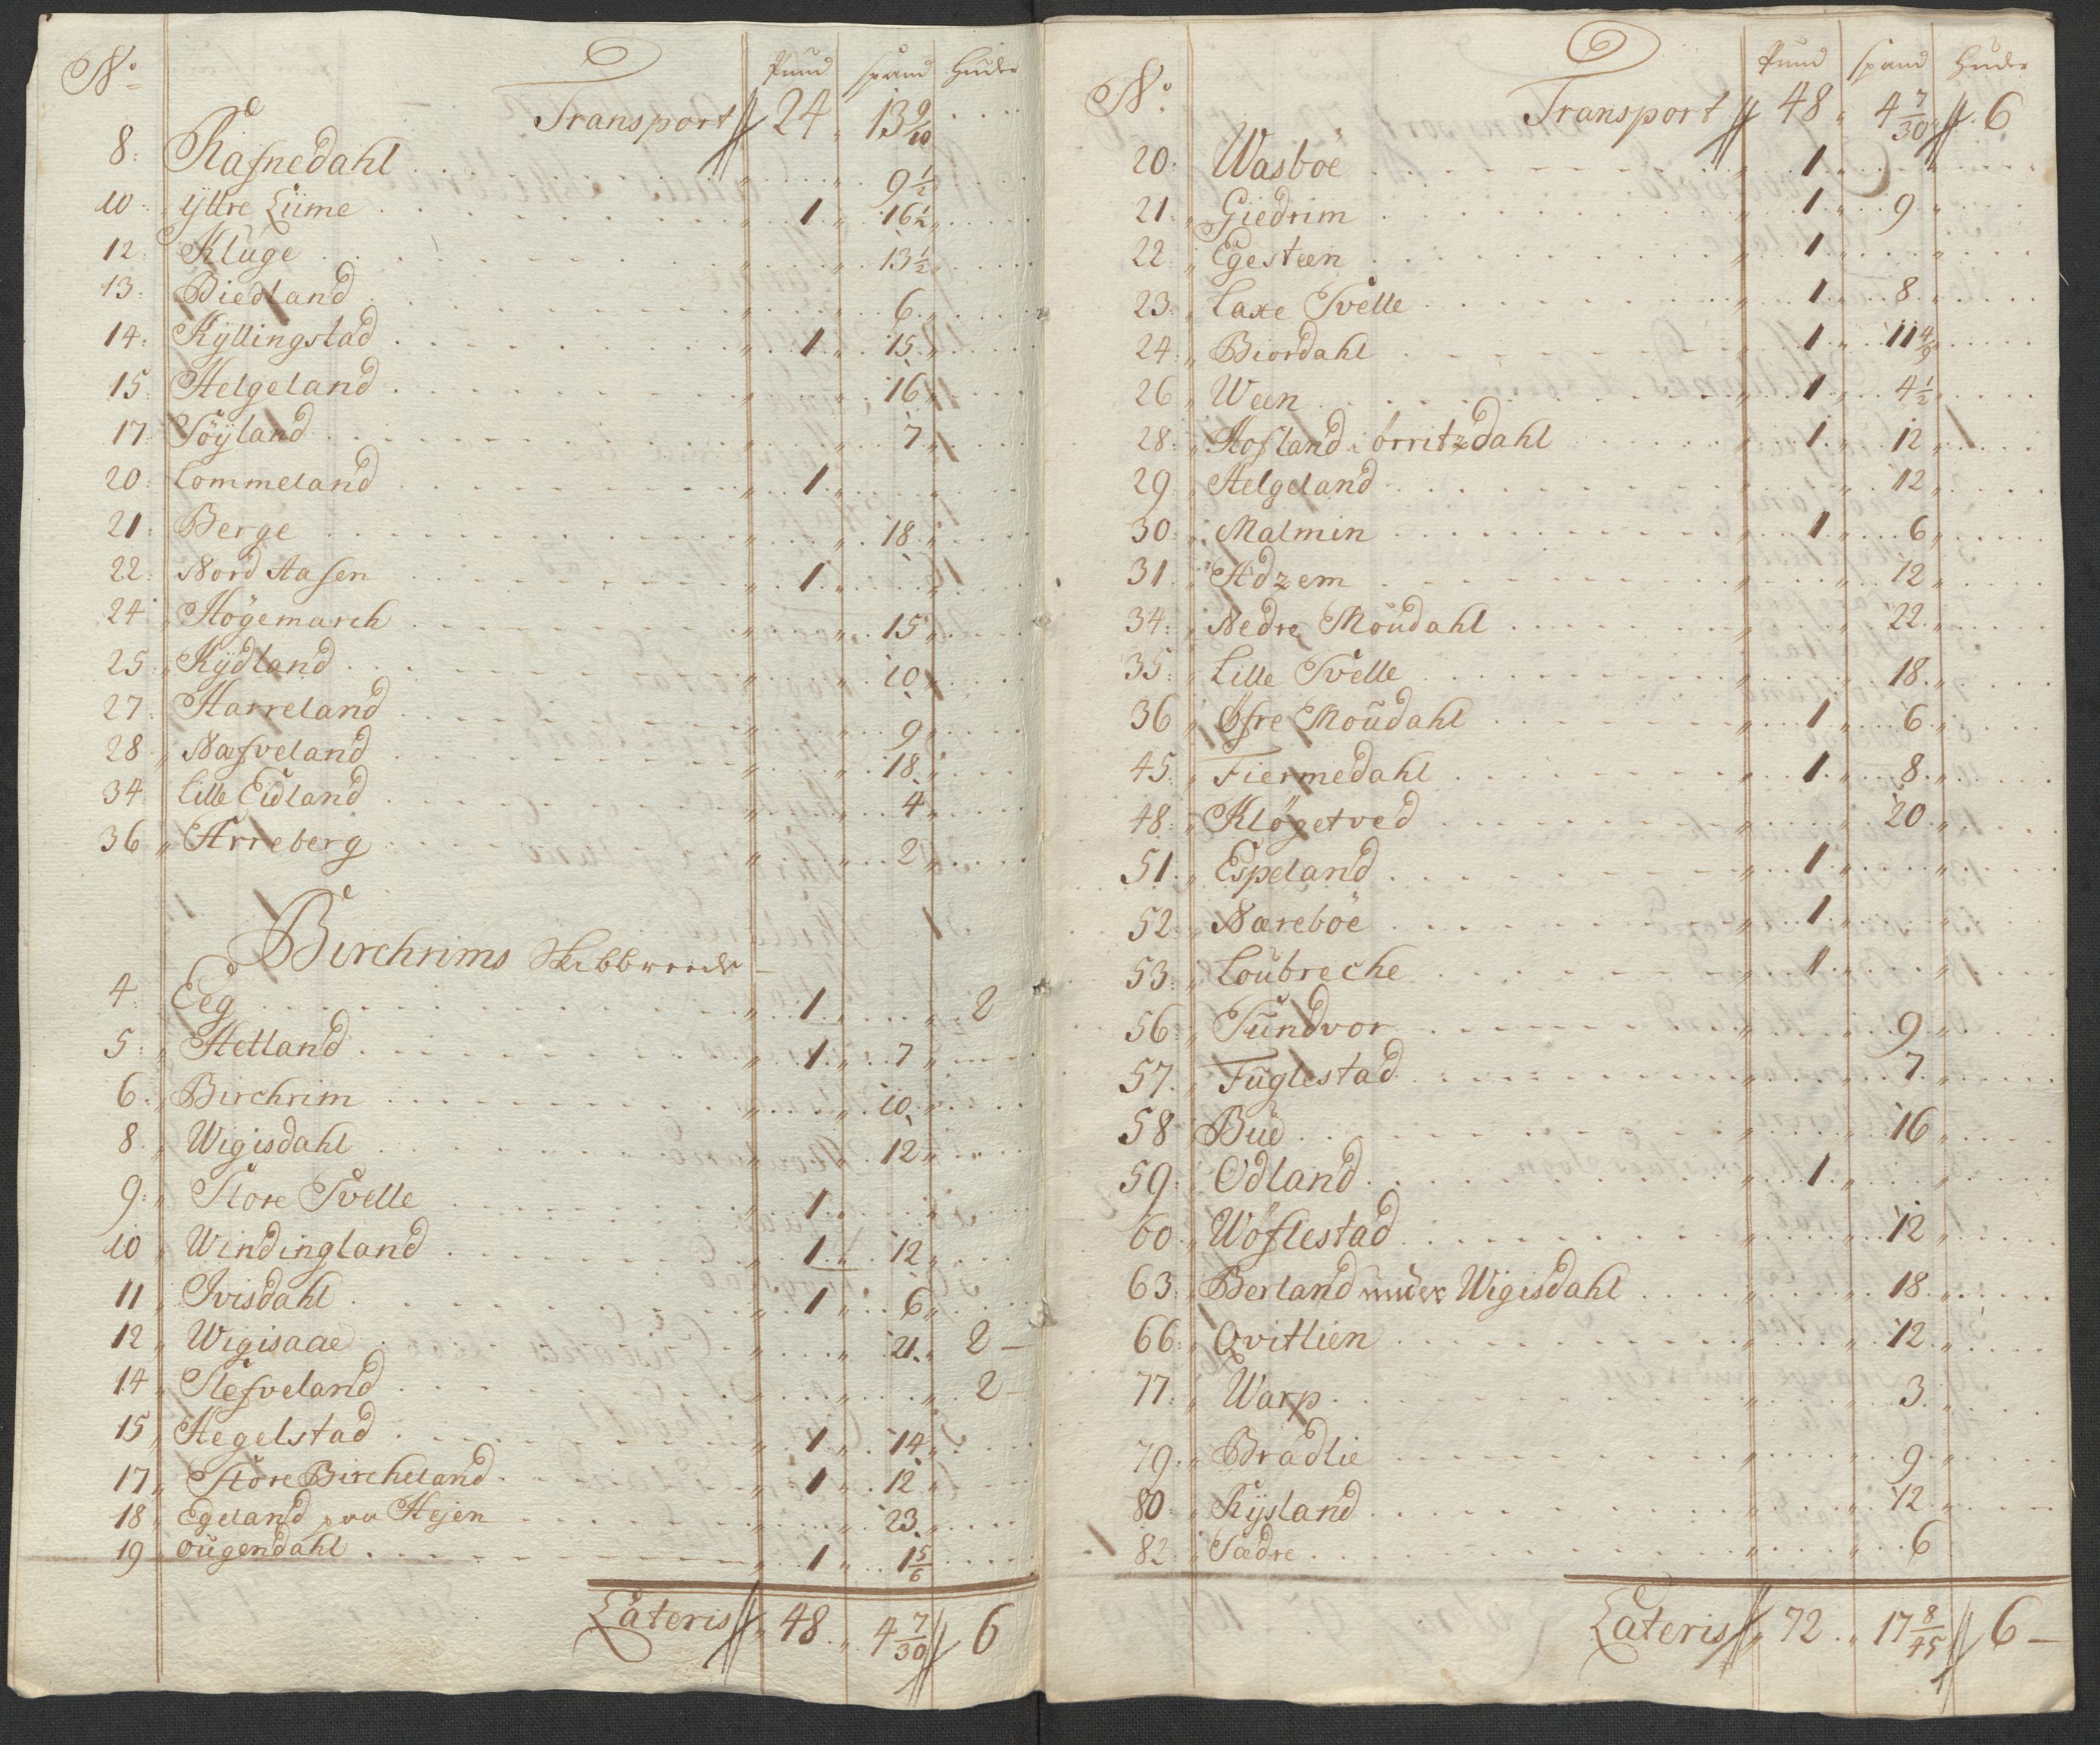 No Pund Spand Huder
Transport 24 " 13 9/10
8: Rafnedahl " " 9 1/2
10 " Yttre Lüme " 1 " 16 1/2 "
12: Klüge " " 13 1/2 "
13: Biedland " " 6 "
14: Kÿllingstad " 1 " 15 "
15: Helgeland " " 16 "
17: Söÿland " " 7 "
20: Lommeland " 1 " "
21: Berge " " 18 "
22: Nord Aasen " 1 " "
24 " Högemarch " " 15 "
25 " Kÿdland " " 10 "
27: Harreland " " 9 "
28 " Nasveland " " 18 "
34: Lille Eidland " " 4 "
36 " Arreberg " " 2 "
Birchrims Skibbreede
4: Eeg " 1 " " 2
5: " Hetland " 1 " 7 "
6: " Birchrim " " 10 "
8 " Wigisdahl " " 12 "
9: " Store Svelle " 1 " "
10 " Windingland " 1 " 12 "
11 " Ivisdahl " 1 " 6 "
12 " Wigisaae " " 21 " 2 –
14 " Slefveland " " " 2 –
15 " Hegelstad " 1 " 14 "
17 " Store Bircheland " 1 " 12 "
18 " Egeland paa Hejen " " 23 "
19 " Ougendahl " 1 " 1 5/6
Lateris " 48 " 4 7/30 6
No Pund Spand Huder
Transport 48 " 4 7/30 6
20: Wasboe " 1 " "
21: " Giedrim " 1 " 9 "
22: " Egesteen " 1 " "
23: " Laxe Svelle " 1 " 8 "
24: " Biordahl " 1 " 11 4/9 "
26 " Ween " 1 " 4 1/2 "
28: " Hofland i Örritzdahl " 1 " 12 "
29: " Helgeland " " 12 "
30: " Malmin " 1 " 6 "
31: " Adzem " " 12 "
34: " Nedre Moüdahl " " 22 "
35: " Lille Svelle " " 18 "
36 " Øfre Moüdahl " 1 " 6 "
45: " Fiermedahl " 1 " 8 "
48: " Klögetved " " 20 "
51: " Espeland " 1 " "
52: " Nareböe " 1 " "
53: " Loübreche " 1 " "
56: " Sündvor " " 9 "
57: " Füglestad " " 7 "
58 " Büe " " 16 "
59: " Odland " 1 " "
60: " Wöflestad " " 12 "
63: " Berland under Wigisdahl " " 18 "
66: " Qvitlien " " 12 "
77: " Warp " " 3 "
79: " Bradlie " " 9 "
80: " Rÿsland " " 12 "
82: " Sædre " " 6
Lateris " 72 " 17 8/45 6 –